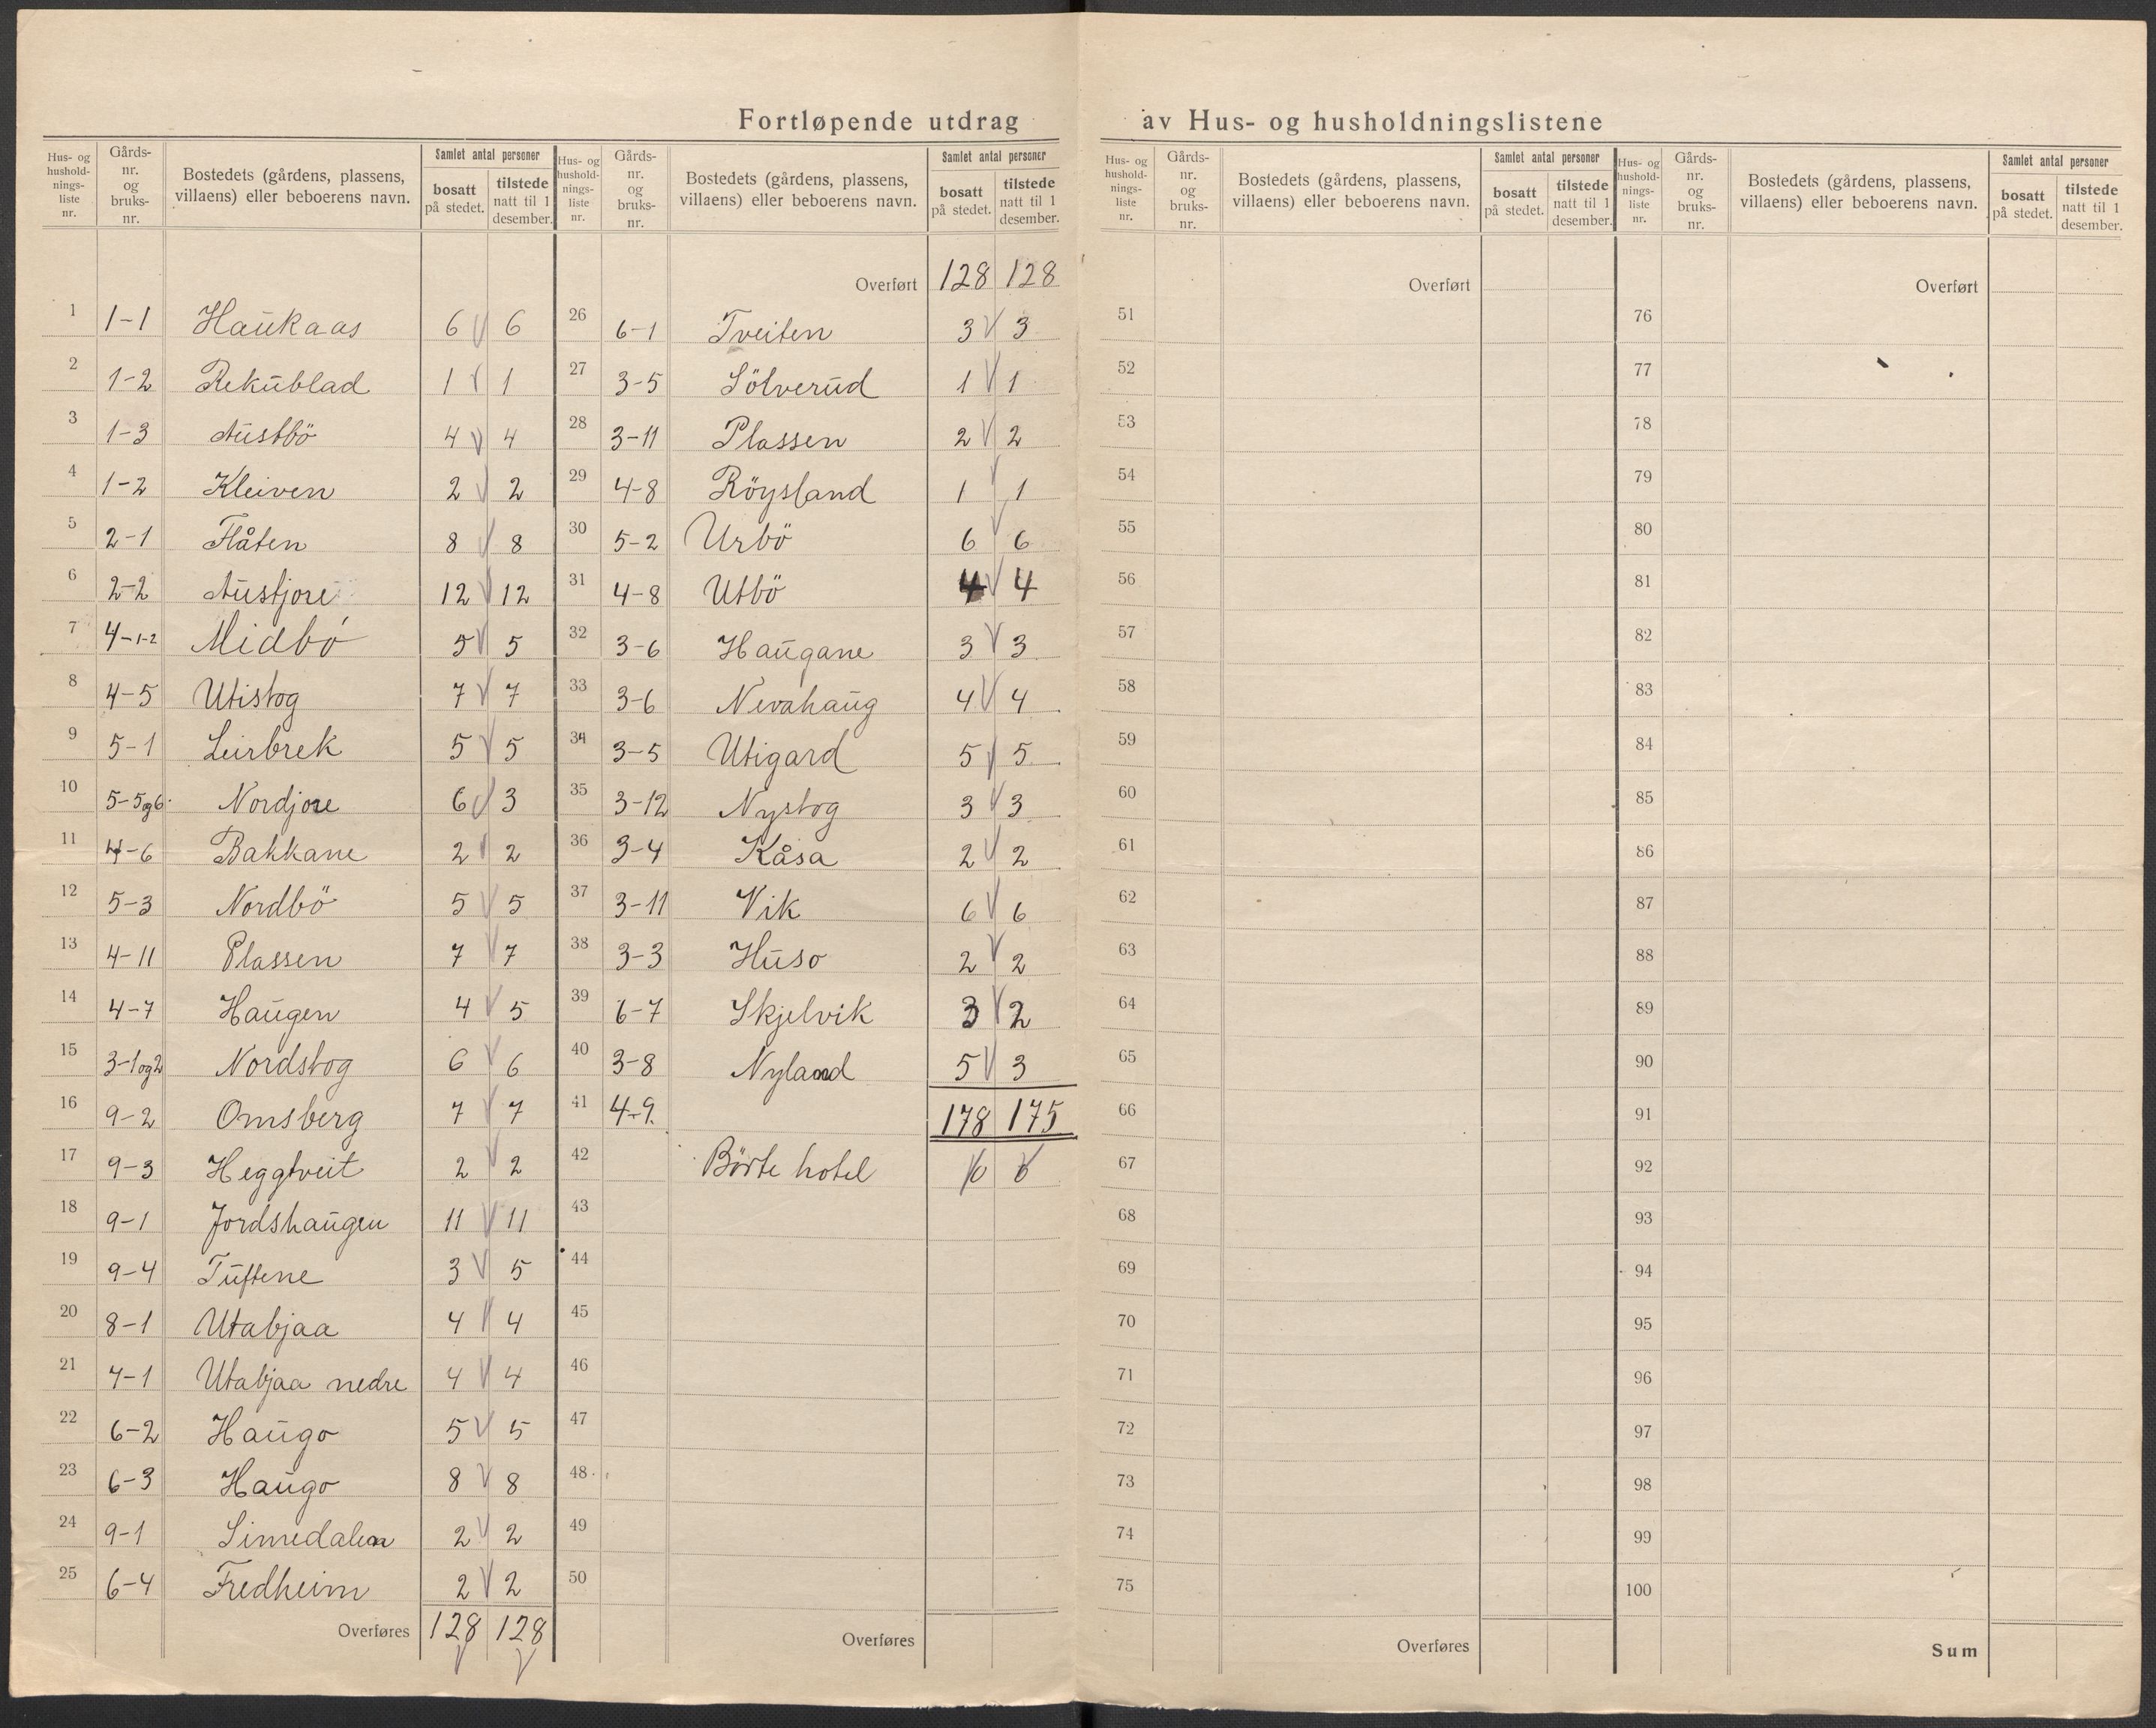 Fortløpende utdrag av Hus- og husholdningslistene
Hus- og husholdnings- liste nr. | Gårds- nr. og bruks- nr. | Bostedets (gårdens, plassens, villaens) eller beboerens navn. | Samlet antal personer | bosatt på stedet. | tilstede natt til 1 desember.
1 1-1 Haukaas 6 6
2 1-2 Rekublad 1 1
3 1-3 Austbö 4 4
4 1-2 Kleiven 2 2
5 2-1 Flåten 8 8
6 2-2 Austjore 12 12
7 4-1-2 Midbö 5 5
8 4-5 Utistog 7 7
9 5-1 Leirbrek 5 5
10 5-5og6 Nordjore 6 3
11 4-6 Bakkane 2 2
12 5-3 Nordbö 5 5
13 4-11 Plassen 7 7
14 4-7 Haugen 4 5
15 3-1og2 Nordstog 6 6
16 9-2 Omsberg 7 7
17 9-3 Heggtveit 2 2
18 9-1 Jordshaugen 11 11
19 9-4 Tuftene 3 5
20 8-1 Utabjaa 4 4
21 7-1 Utabjaa nedre 4 4
22 6-2 Haugo 5 5
23 6-3 Haugo 8 8
24 9-1 Simedalen 2 2
25 6-4 Fredheim 2 2
Overføres 128 128
Hus- og husholdnings- liste nr. | Gårds- nr. og bruks- nr. | Bostedets (gårdens, plassens, villaens) eller beboerens navn. | Samlet antal personer | bosatt på stedet. | tilstede natt til 1 desember.
Overført 128 128
26 6-1 Tveiten 3 3
27 3-5 Sölverud 1 1
28 3-11 Plassen 2 2
29 4-8 Röysland 1 1
30 5-2 Urbö 6 6
31 4-8 Utbö 4 4
32 3-6 Haugane 3 3
33 3-6 Nevahaug 4 4
34 3-5 Utigard 5 5
35 3-12 Nystog 3 3
36 3-4 Kåsa 2 2
37 3-11 Vik 6 6
38 3-3 Huso 2 2
39 6-7 Skjelvik 3 2
40 3-8 Nyland 5 3
41 4-9 178 175
42 Börte hotel 0 0
43
44
45
46
47
48
49
50
Overføres
Hus- og husholdnings- liste nr. | Gårds- nr. og bruks- nr. | Bostedets (gårdens, plassens, villaens) eller beboerens navn. | Samlet antal personer | bosatt på stedet. | tilstede natt til 1 desember.
Overført
51
52
53
54
55
56
57
58
59
60
61
62
63
64
65
66
67
68
69
70
71
72
73
74
75
Overføres
Hus- og husholdnings- liste nr. | Gårds- nr. og bruks- nr. | Bostedets (gårdens, plassens, villaens) eller beboerens navn. | Samlet antal personer | bosatt på stedet. | tilstede natt til 1 desember.
Overført
76
77
78
79
80
81
82
83
84
85
86
87
88
89
90
91
92
93
94
95
96
97
98
99
100
Sum